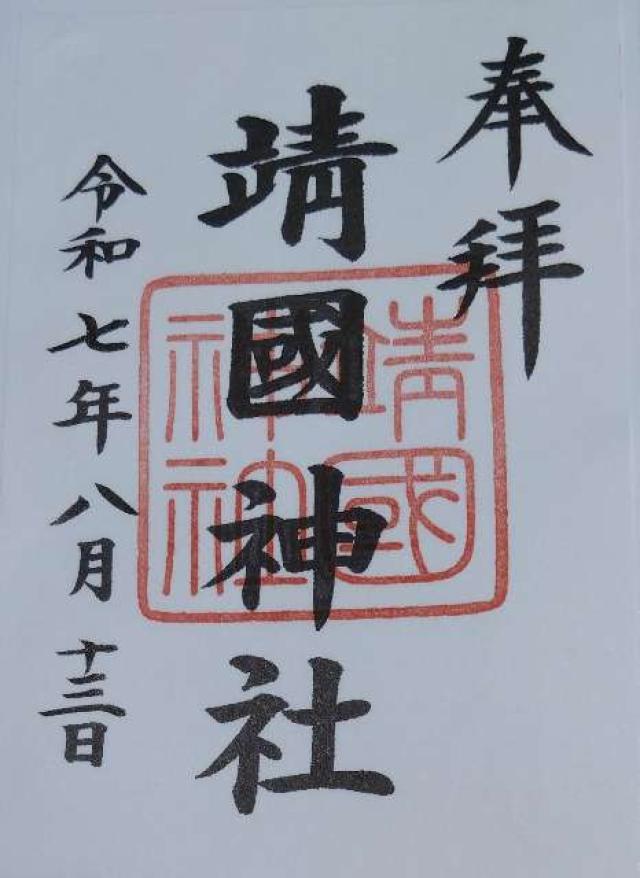 奉拝
靖國神社
令和七年八月十三日
靖國
神社